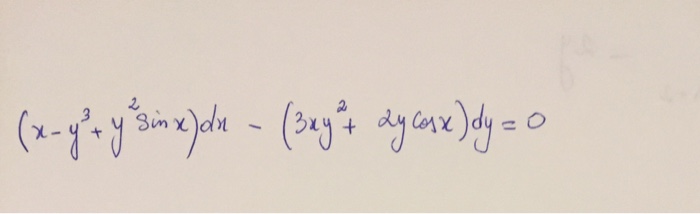 (x-y³+y²sinx)dx - (3xy²+ 2ycosx)dy=0